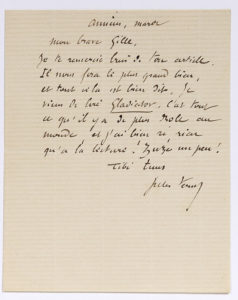 Amiens, mardi
mon brave Gille,
Je te remercie bien de ton article.
Il nous fera le plus grand bien,
et tout cela est bien dit. Je
viens de lire Gladiator. C'est tout
ce qu'il y a de plus drôle au
monde et j'ai bien ri rien
qu'à la lecture! un peu!
Tibi tuus
Jules Verne